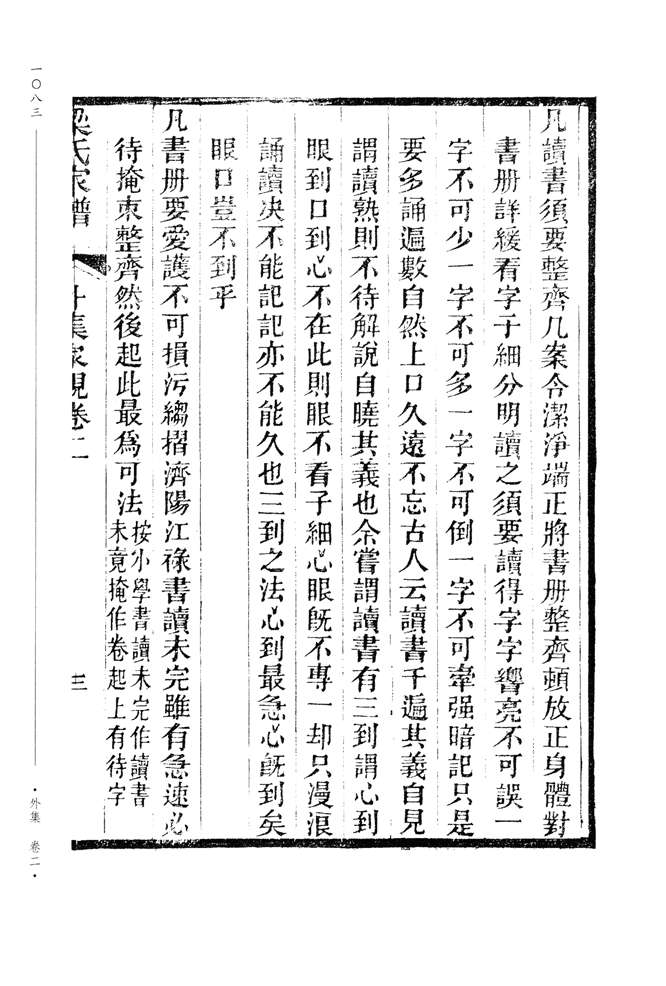 凡讀書須要整齊几案令潔淨端正將書册整齊頓放正身體對
書册詳緩看字子細分明讀之須要讀得字字響亮不可誤一
字不可少一字不可多一字不可倒一字不可牽强暗記只是
要多誦遍數自然上口久遠不忘古人云讀書千遍其義自見
謂讀熟則不待解說自曉其義也余嘗謂讀書有三到謂心到
眼到口到心不在此則眼不看子細心眼旣不專一却只漫浪
誦讀决不能記記亦不能久也三到之法心到最急心旣到矣
眼口豈不到乎
凡書册要愛護不可損污縐摺濟陽江祿書讀未完雖有急速必
待掩束整齊然後起此最爲可法
按小學書讀未完作讀書
未竟掩作卷起上有待字
梁氏家譜
外集家規卷二
三
一〇八三
·外集 卷二·